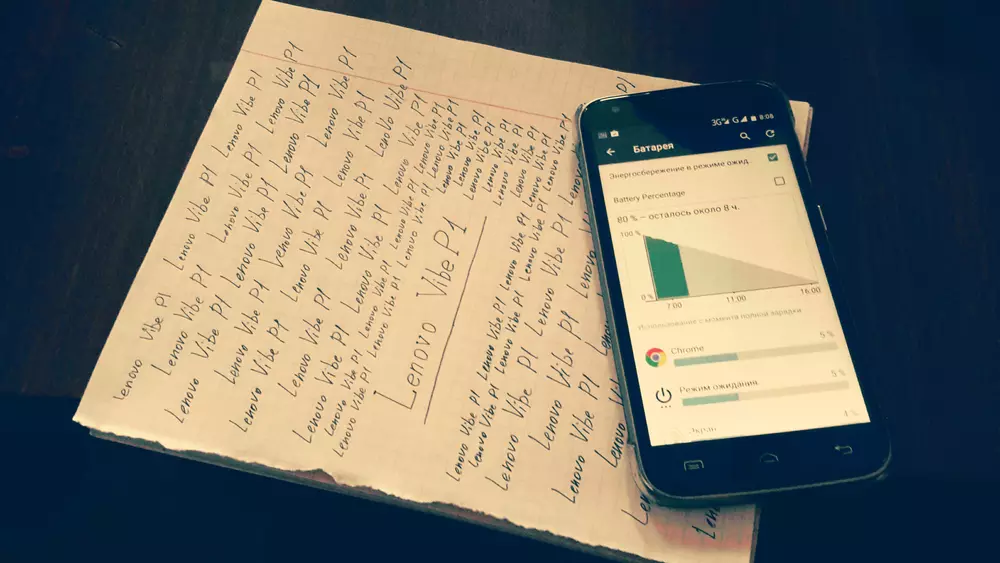 Lenovo Vibe P1 Lenovo Vibe P1 Lenovo Vibe P1
Lenovo Vibe P1 Lenovo Vibe P1 Lenovo Vibe P1
Lenovo Vibe P1 Lenovo Vibe P1 Lenovo Vibe P1
Lenovo Vibe P1 Lenovo Vibe P1 Lenovo Vibe P1
Lenovo Vibe P1 Lenovo Vibe P1 Lenovo Vibe P1
Lenovo Vibe P1 Lenovo Vibe P1 Lenovo Vibe P1
Lenovo Vibe P1 Lenovo Vibe P1 Lenovo Vibe P1
Lenovo Vibe P1 Lenovo Vibe P1 Lenovo Vibe P1 Lenovo Vibe P1
Lenovo Vibe P1 Lenovo Vibe P1 Lenovo Vibe P1 Lenovo Vibe P1
Lenovo Vibe P1
Lenovo Vibe P1
Lenovo Vibe P1
Lenovo Vibe P1
Lenovo Vibe P1 Lenovo Vibe P1 Lenovo Vibe P1 Lenovo Vibe P1
Lenovo Vibe P1 Lenovo Vibe P1 Lenovo Vibe P1 Lenovo Vibe P1
Lenovo Vibe P1 Lenovo Vibe P1 Lenovo
Lenovo Vibe P1
Lenovo Vibe P1
Lenovo
P1
3G G 8:08
Батарея
Энергосбережение в режиме ожид
Battery Percentage
80 % – осталось около 8 ч.
100 %
0 %
7:00 11:00 16:00
Использование с момента полной зарядки
Chrome 5 %
Режим ожидания 5 %
Экран 4 %